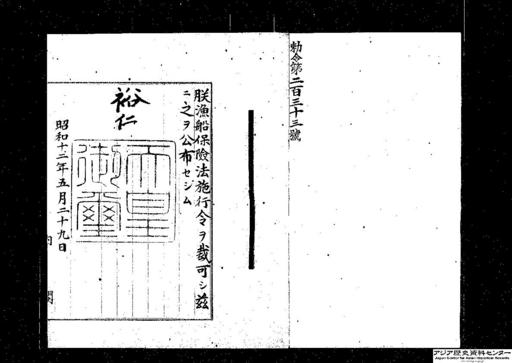 勅令第二百三十三號
朕漁船保險法施行令ヲ裁可シ茲
ニ之ヲ公布セシム
裕仁
天皇御璽
昭和十二年五月二十九日
内閣
アジア歴史資料センター
Japan Center for Asian Historical Records